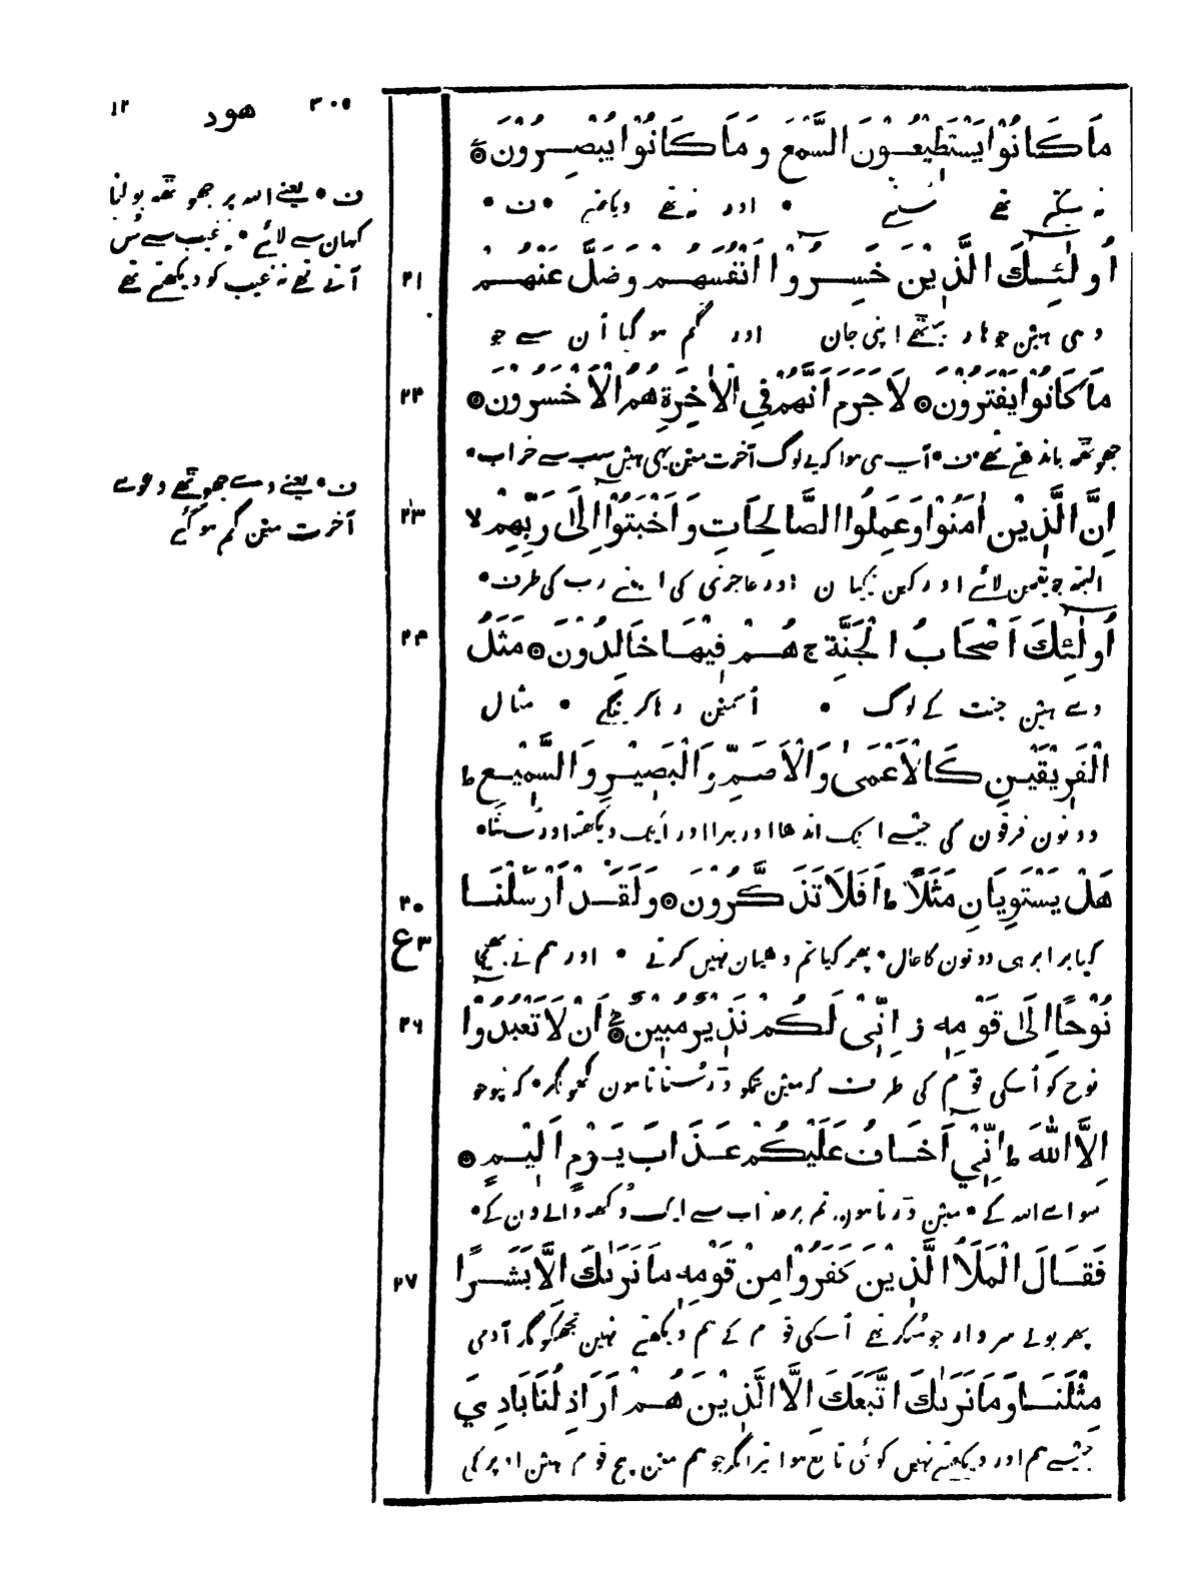 ١٢ هود ٣٠٥
مَا كَانُوْا يَسْتَطِيْعُوْنَ السَّمْعَ وَ مَا كَانُوْا يُبْصِرُوْنَ
نہ سکتے تھے سننے • اور نہ تھے دیکھتے • ف •
ف • یعنے اللہ پر جھوٹھہ بولنا
کہان سے لائے • نہ غیب سے سُن
آتے تھے نہ غیب کو دیکھتے تھے
٢١ اُولٰئِكَ الَّذِيْنَ خَسِرُوْا اَنْفُسَهُمْ وَضَلَّ عَنْهُمْ
وہی ہیٖن جو ہار بیٹھے اپنی جان اور گُم ہو گیا اُن سے جو
٢٢ مَا كَانُوْا يَفْتَرُوْنَ لَا جَرَمَ اَنَّهُمْ فِي الْاٰخِرَةِ هُمُ الْاَخْسَرُوْنَ
جھوٹھہ باندھتے تھے • ف • آپ ہی ہوا کہ یے لوگ آخرت مین یہی ہیٖن سب سے خراب •
ف • یعنے وے جھوٹھے دعوے
آخرت میٖن گم ہو گئے
٢٣ اِنَّ الَّذِيْنَ اٰمَنُوْا وَعَمِلُوا الصَّالِحَاتِ وَ اَخْبَتُوْا اِلٰى رَبِّهِمْ لا
البتہ جو یقین لائے اور کین نیکیان اور عاجزی کی اپنے رب کی طرف •
٢٤ اُولٰئِكَ اَصْحَابُ الْجَنَّةِ ج هُمْ فِيْهَا خَالِدُوْنَ مَثَلُ
وے ہیٖن جنت کے لوگ • اُسمین رہا کرینگے • مثال
الْفَرِيْقَيْنِ كَالْاَعْمٰى وَالْاَصَمِّ وَالْبَصِيْرِ وَالسَّمِيْعِ ط
دونون فرقون کی جیٖسے ایک اندھا اور بہرا اور ایٖک دیکھتا اور سُنتا •
٢٥ هَلْ يَسْتَوِيَانِ مَثَلًا ط اَفَلَا تَذَكَّرُوْنَ وَلَقَدْ اَرْسَلْنَا
ع ٣
کیا برابر ہی دونون کا حال • پھر کیا تم دھیان نہیں کرتے • اور ہم نے بھیجا
٢٦ نُوْحًا اِلٰى قَوْمِهٖ ز اِنِّيْ لَكُمْ نَذِيْرٌ مُبِيْنٌ اَنْ لَا تَعْبُدُوْا
نوح کو اُسکی قوم کی طرف کہ مین تمکو ڈر سُناتا ہون کھولکر • کہ نپوجو
اِلَّا اللهَ ط اِنِّيْ اَخَافُ عَلَيْكُمْ عَذَابَ يَوْمٍ اَلِيْمٍ
سواے اللہ کے • میٖن ڈرتا ہون تم پر عذاب سے ایک دُکھہ والے دن کے •
٢٧ فَقَالَ الْمَلَاُ الَّذِيْنَ كَفَرُوْا مِنْ قَوْمِهٖ مَا نَرٰىكَ اِلَّا بَشَرًا
پھر بولے سردار جو مُنکر تھے اُسکی قوم کے ہم دیکھتے نہین تجھکو مگر آدمی
مِثْلَنَا وَمَا نَرٰىكَ اتَّبَعَكَ اِلَّا الَّذِيْنَ هُمْ اَرَاذِلُنَا بَادِيَ
جیٖسے ہم اور دیکھتے نہیں کوئی تابع ہوا تیرا مگر جو ہم مین نیچ قوم ہیٖن اوپر کی